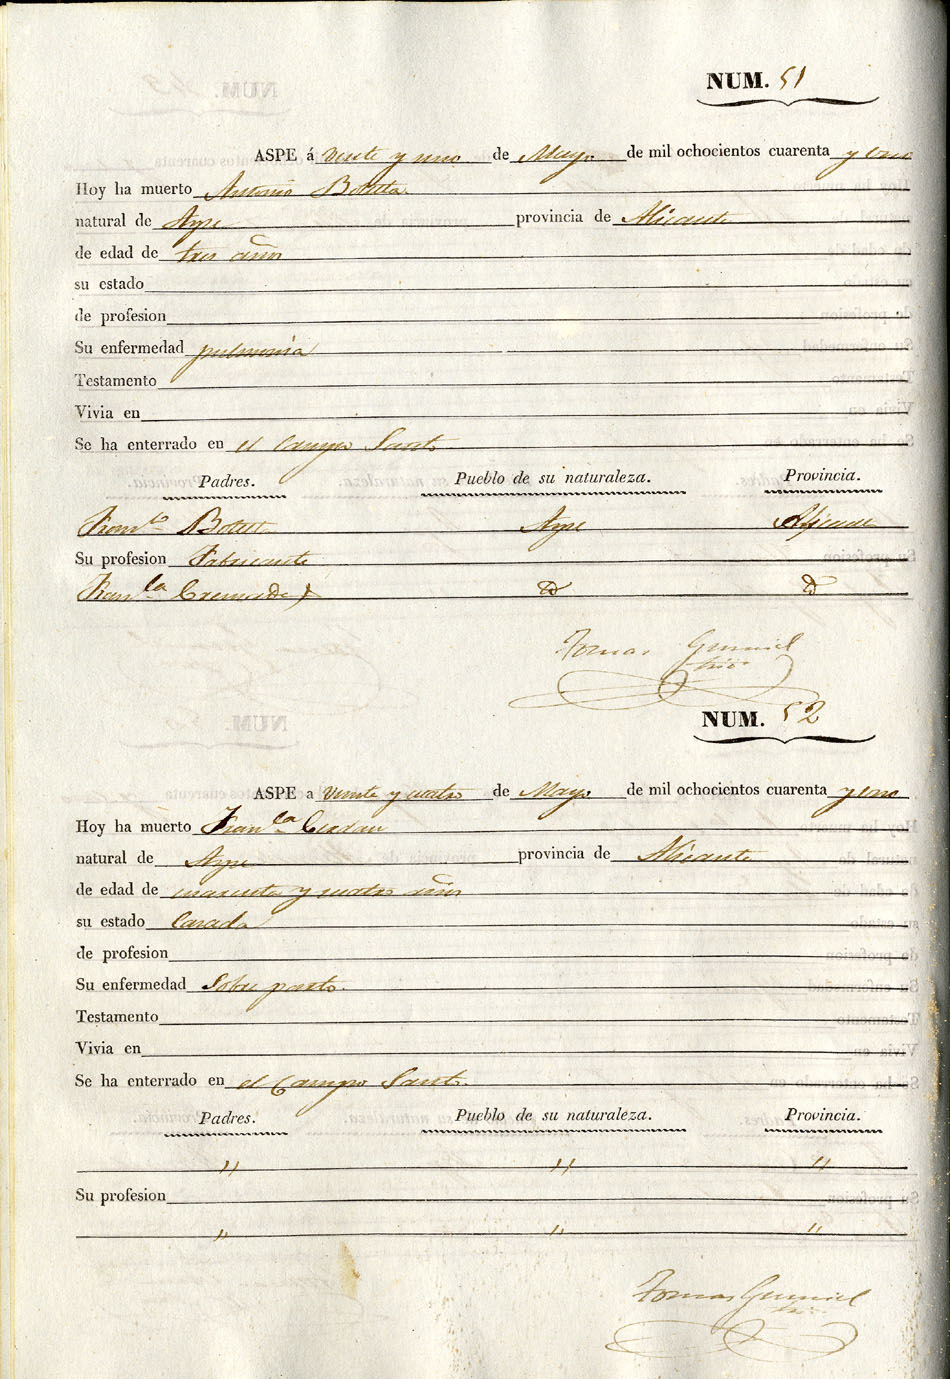 NUM. 51
ASPE á veinte y uno de Mayo de mil ochocientos cuarenta y uno
Hoy ha muerto Antonio Botella
natural de Aspe provincia de Alicante
de edad de tres años
su estado
de profesion
Su enfermedad pulmonia
Testamento
Vivia en
Se ha enterrado en el Campo Santo
Padres. Pueblo de su naturaleza. Provincia.
Fran.co Botella Aspe Alicante
Su profesion Fabricante
Fran.ca Cremades Yd Yd
Tomas
NUM. 52
ASPE a veinte y cuatro de Mayo de mil ochocientos cuarenta y uno
Hoy ha muerto Fran.ca Cerdan
natural de Aspe provincia de Alicante
de edad de cuarenta y cuatro años
su estado Casada
de profesion
Su enfermedad Sobre parto.
Testamento
Vivia en
Se ha enterrado en el Campo Santo.
Padres. Pueblo de su naturaleza. Provincia.
" " "
Su profesion
" " "
Tomas